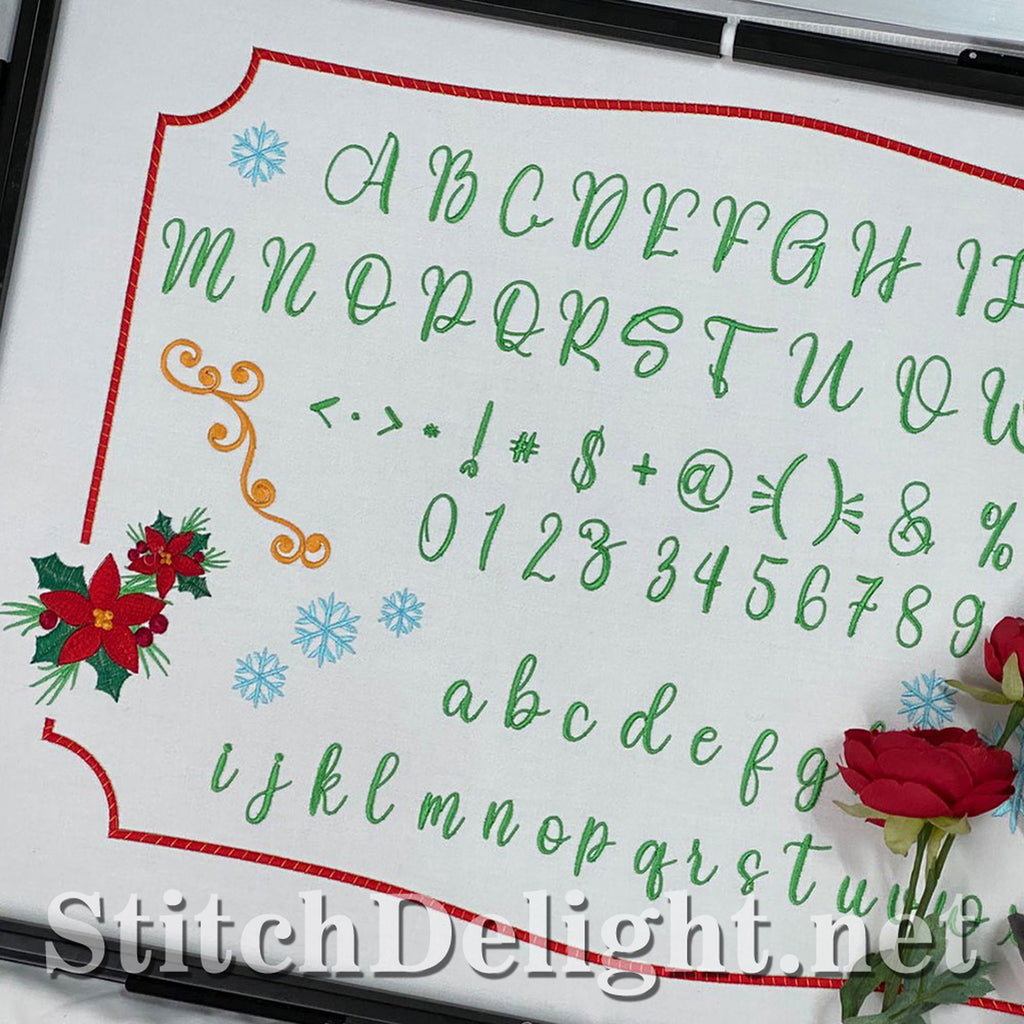 A B C D E F G H I
M N O P Q R S T U V W
< · > * ! # $ + @ ( ) & %
0 1 2 3 3 4 5 6 7 8 9
a b c d e f g
i j k l m n o p q r s t u
StitchDelight.net